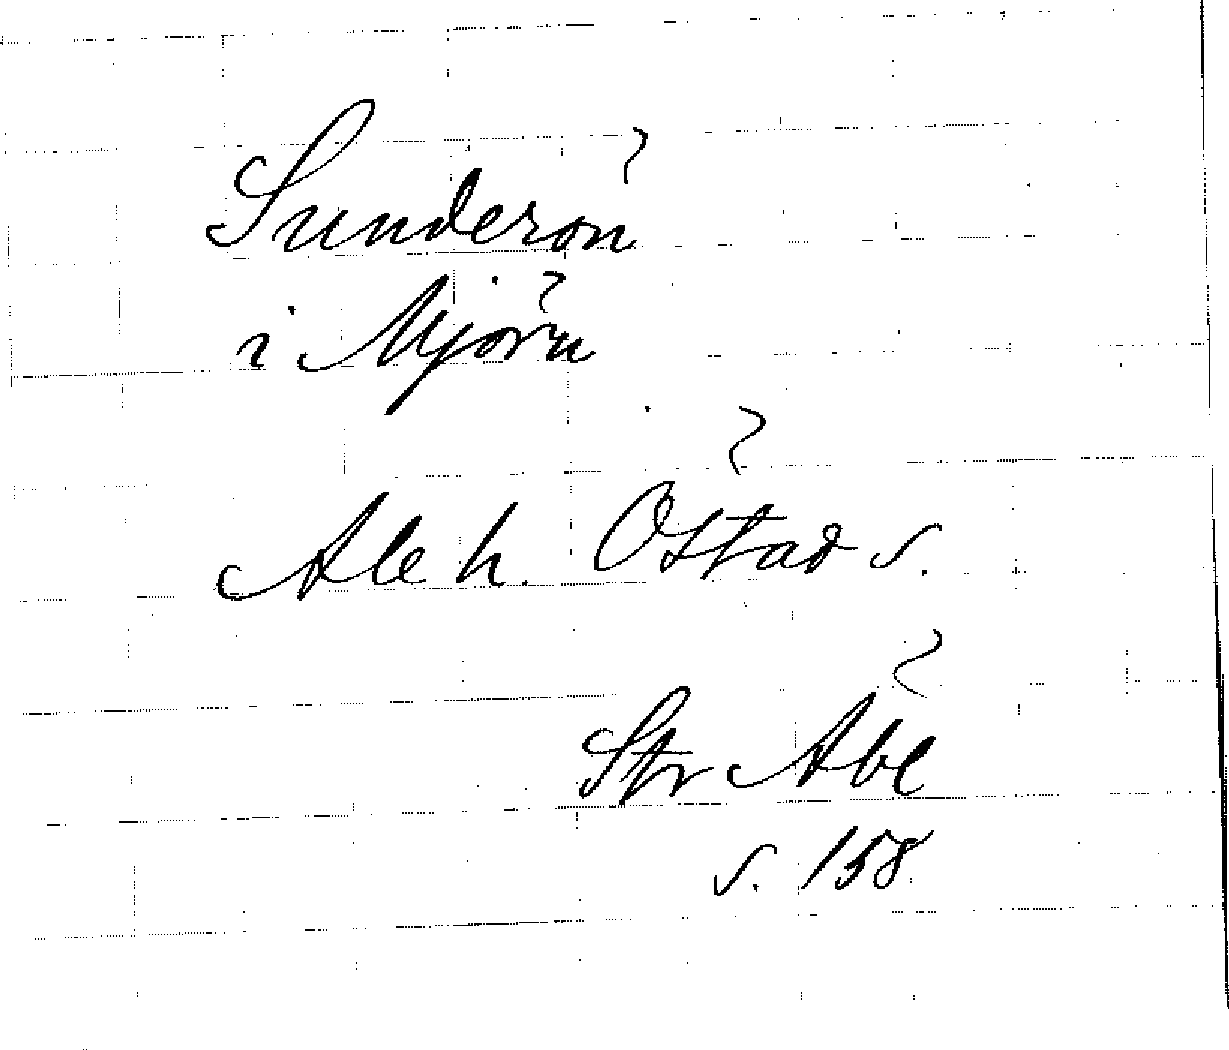 Sunderön
i Mjörn
Ale h. Östad s.
Str Abe
s. 158